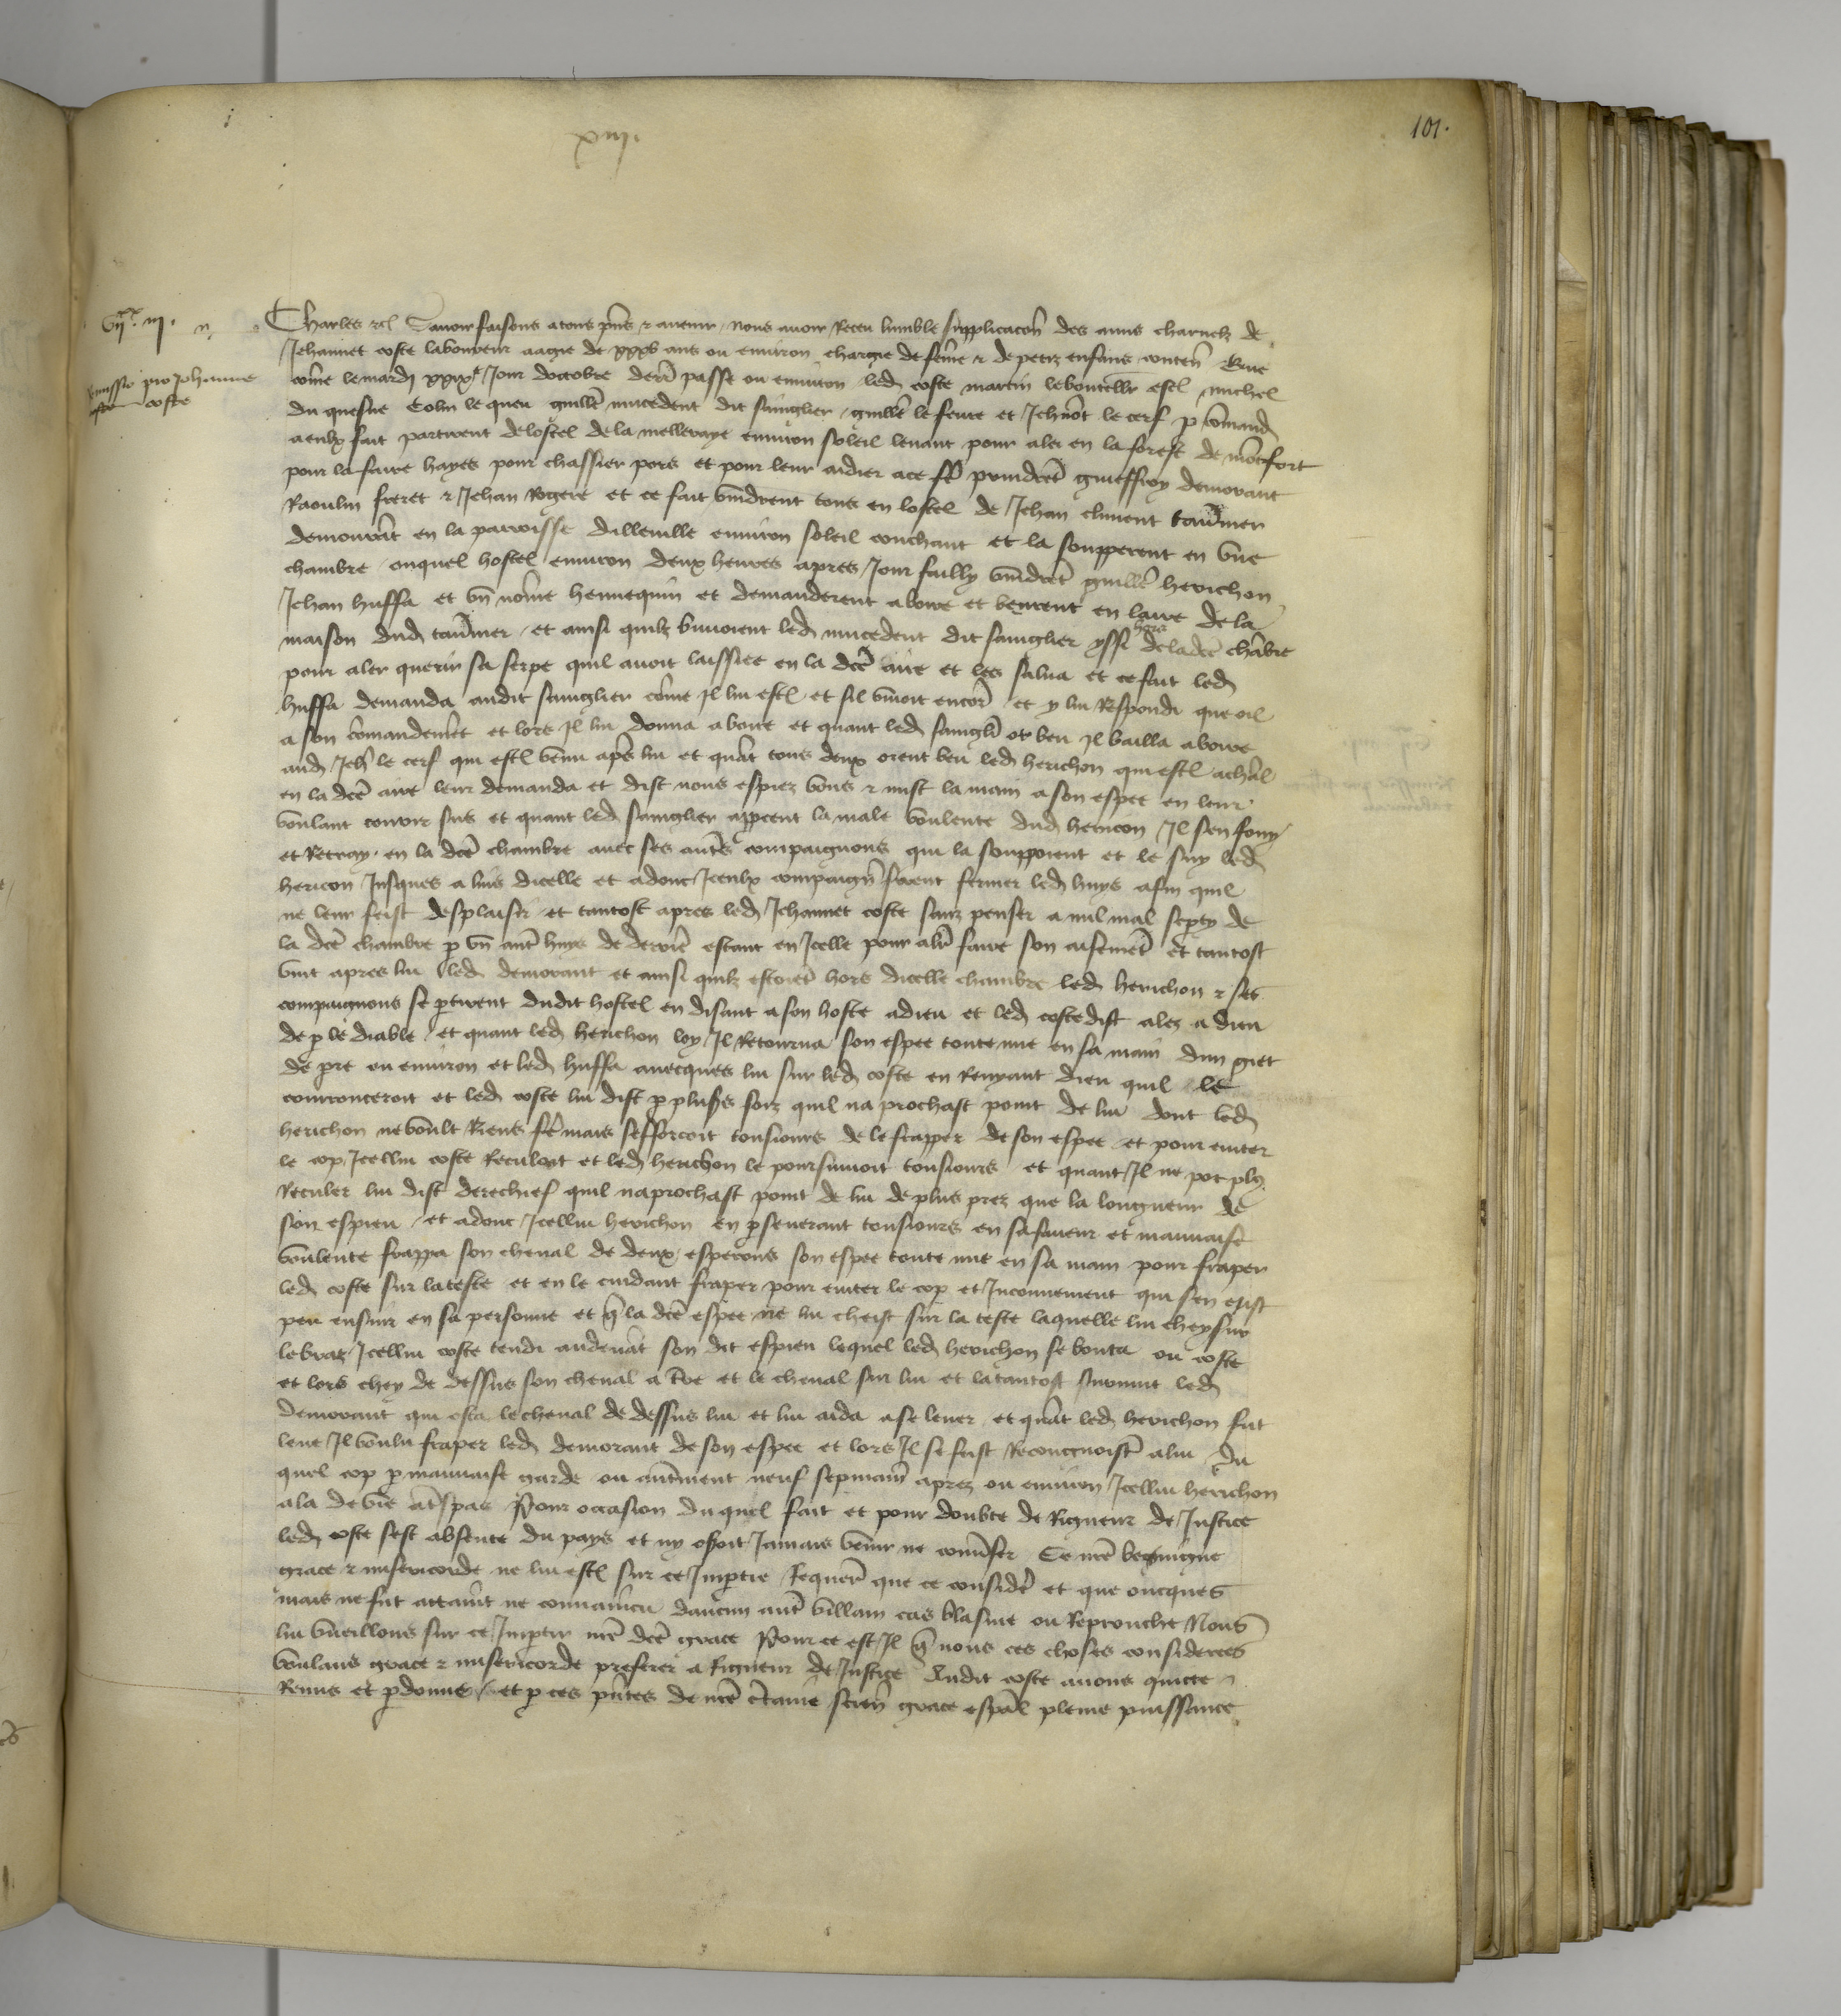 xiiij.
101.
vijxx iij.
Remissio pro Johanne
coste
Charles etc Savoir faisons a tous pns & avenir nous avoir Receu humble supplicacon des amis charnelz de
Jehannet coste laboureur aagie de xxxv ans ou environ chargie de feme & de petiz enfans conten Que
come le mardi xxixe Jour doctobre derr passe ou environ led coste martin le bouteillr michel
du quesne Colin le queu guille mucedent dit sanglier guille le fevre et Jehnot le cerf p comand
a eulx fait partirent de lostel de la mellevaye environ soleil levant pour aler en la forest de montfort
pour la faire hayes pour chassier pors et pour leur aidier a ce fe prindret guieffroy demorant
Raoulin freret & Jehan Rogere et ce fait vindrent tous en lostel de Jehan climent tavnier
demourat en la parroisse dilleville environ soleil couchant et la soupperent en une
chambre ouquel hostel environ deux heures apres Jour failly vindret guille herichon
Jehan huffa et un nome hennequin et demanderent a boire et beurent en laire de la
maison dud tavnier et ainsi quilz buvoient led mucedent dit sanglier yssi hors de ladce chabre
pour aler querir sa serpe quil avoit laissiee en la dce aire et les salua et ce fait led
huffa demanda audit sanglier come Il lui estl et sil vivoit encor et y lui Respondi que oil
a son comandemet et lors Il lui donna a boire et quant led sangl ot beu Il bailla a boire
aud Jeh le cerf qui estl venu aps lui et quat tous deux orent beu led herichon qui estl a chval
en la dce aire leur demanda et dist nous espiez vous & mist la main a son espee en leur
voulant courir sus et quant led sanglier apperceut la male voulente dud hericon Il sen fouy
et Retray en la dce chambre avec ses autes compaignons qui la souppoient et le suy led
hericon Jusques a luis dicelle et adonc Iceulx compaign firent fermer led huys afin quil
ne leur feist desplaisir et tantost apres led Jehannet coste sanz penser a nul mal se pty de
la dce chambre p un aut huys de derrie estant en Icelle pour aler faire son aisemet et tantost
vint apres lui led demorant et ainsi quilz estoiet hors dicelle chambre led herichon & ses
compaignons se ptirent dudit hostel en disant a son hoste adieu et led coste dist alez a dieu
de p le diable et quant led herichon loy Il Retourna son espee toute nue en sa main dun giet
de pre ou environ et led huffa avecques lui sur led coste en Renyant dieu quil le
courronceroit et led coste lui dist p pluss foiz quil naprochast point de lui dont led
herichon ne voult Riens fe mais sefforcoit tousiours de le frapper de son espee et pour eviter
le cop Icellui coste Reculoit et led herichon le poursuivoit tousiours et quant Il ne pot plus
Reculer lui dist derechief quil naprochast point de lui de plus prez que la longueur de
son espieu et adonc Icellui herichon en pseverant tousiours en sa fureur et mauvaise
voulente frappa son cheval de deux esperons son espee toute nue en sa main pour fraper
led coste sur la teste et en le cuidant fraper pour eviter le cop et Inconvenient qui sen eust
peu ensuir en sa personne et q la dce espee ne lui cheist sur la teste laquelle lui chey sur
le braz Icellui coste tendi audevat son dit espieu lequel led herichon se bouta ou coste
et lors chey de dessus son cheval a tre et le cheval sur lui et la tantost survint led
demorant qui osta le cheval de dessus lui et lui aida a se lever et quat led herichon fut
leve Il voulu fraper led demorant de son espee et lors Il se feist Recongnoist a lui Du
quel cop p mauvaise garde ou autment neuf sepmain aprez ou environ Icellui herichon
ala de vie a tspas Pour occasion du quel fait et pour doubte de Rigueur de Justice
led coste sest absente du pays et ny oseroit Jamais venir ne convser Se nre benigne
grace & misericorde ne lui estl sur ce Impartie Requer que ce consider et que oncques
mais ne fut attaint ne convaincu daucun aut villain cas blasme ou Reprouche Nous
lui vueillons sur ce Impartir nre dce grace Pour ce est Il q nous ces choses considerees
voulans grace & misericorde preferer a Rigueur de Justice Audit coste avons quicte
Remis et pdonne et p ces pntes de nre ctaine scien grace espal pleine puissance